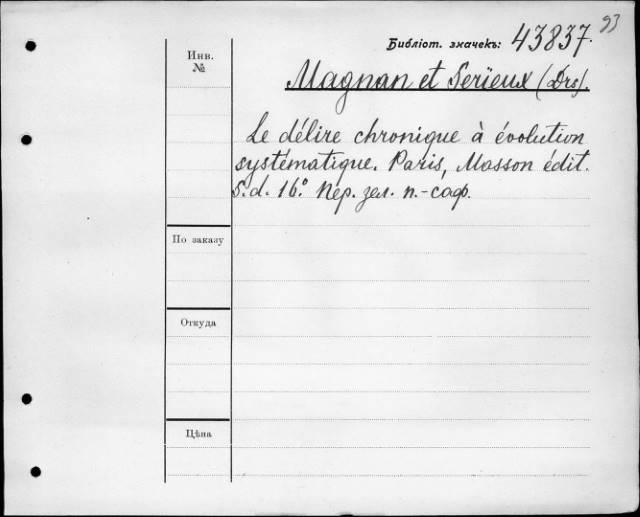 93
Библіот. значекъ: 43837.
Инв.
№
Magnan et Serïeux (Drs).
Le délire chronique à évolution
systématique. Paris, Masson édit.
S.d. 16º. Пер. зел. п.-саф.
По заказу
Откуда
Цѣна